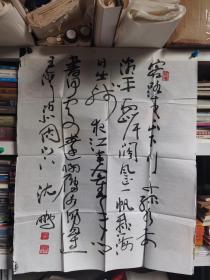 客路青山下行舟绿水前
潮平两岸阔风正一帆悬海
日生残夜江春入旧年乡
书何处达归雁洛阳边
王湾次北固山下
沈鹏